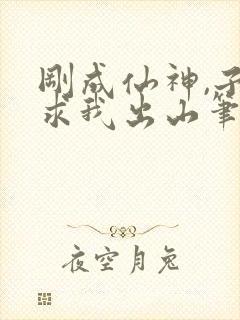 刚成仙神,子
求我出山笔
夜空月兔